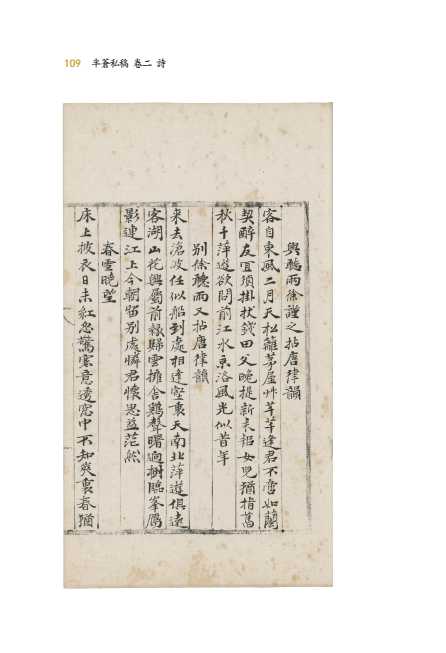 109 半蒼私稿 卷二 詩
與聽雨徐謹之拈唐律韻
客自東風二月天松籬茅屋艸芊芊逢君不啻如蘭
契醉友宜須掛杖錢田父晚提新未稻女兒猶指舊
秋千萍逰欲問前江水京洛風光似昔年
別徐聽雨又拈唐律韻
來去滄波任似船到處相逢堅裏天南北萍逰俱遠
客湖山花興屬前緣歸雲擁舍鷄聲曙逈樹臨峯鴈
影連江上今朝留別處憐君懷思益茫然
春雪曉望
床上披衣日未紅忽驚寒意透窓中不知爽裏春猶